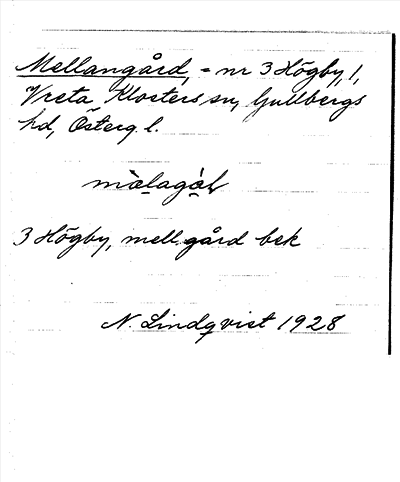 Mellangård, = nr 3 Högby, l,
Vreta Klosters sn, Gullbergs
hd, Österg. l.
3 Högby, mell.gård bek
N. Lindqvist 1928